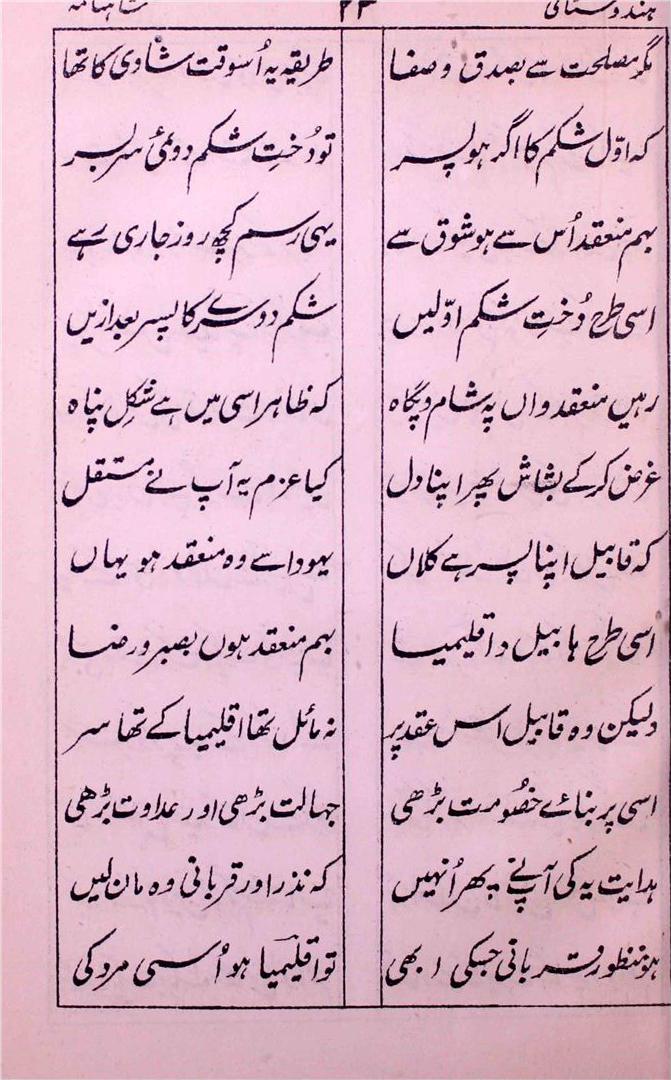 ہندوستانی ۲۳ شاہنامہ
مگر مصلحت سے بصدق و صفا طریقہ یہ اُسوقت شادی کا تھا
کہ اوّل شکم کا اگر ہو پسر تو دُختِ شکم دوئمی سربسر
بہم منعقد اُس سے ہو شوق سے یہی رسم کچھ روز جاری رہے
اسی طرح دُختِ شکم اوّلیں شکم دوسرے کا پسر بعد ازیں
رہیں منعقد واں پہ شام و پگاہ کہ ظاہر اسی میں ہے شکلِ پناہ
غرض کرکے بشاش پھر اپنا دل کیا عزم یہ آپ نے مستقل
کہ قابیل اپنا پسر ہے کلاں یہودا سے وہ منعقد ہو یہاں
اسی طرح ہابیل و اقلیمیا بہم منعقد ہوں بصبر و رضا
ولیکن وہ قابیل اس عقد پر نہ مائل تھا اقلیمیا کے تھا سر
اسی پر بنائے خصُومت بڑھی جہالت بڑھی اور عداوت بڑھی
ہدایت یہ کی آپنے پھر اُنہیں کہ نذر اور قربانی وہ مان لیں
ہو منظور قربانی جسکی ابھی تو اقلیمیا ہو اُسی مرد کی